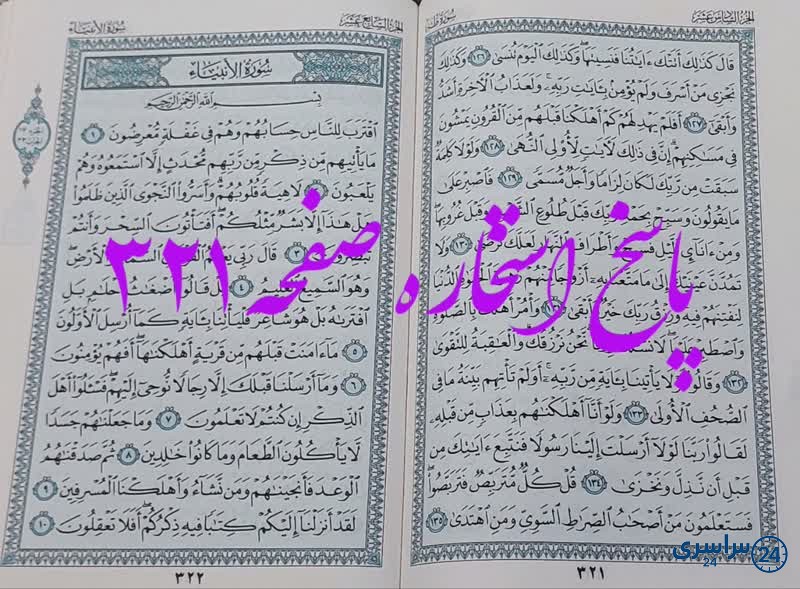 الجزء السادس عشر
سورة طه
قَالَ كَذَٰلِكَ أَتَتْكَ ءَايَٰتُنَا فَنَسِيتَهَا وَكَذَٰلِكَ ٱلْيَوْمَ تُنسَىٰ ١٢٦ وَكَذَٰلِكَ
نَجْزِى مَنْ أَسْرَفَ وَلَمْ يُؤْمِنۢ بِـَٔايَٰتِ رَبِّهِۦ وَلَعَذَابُ ٱلْءَاخِرَةِ أَشَدُّ
وَأَبْقَىٰٓ ١٢٧ أَفَلَمْ يَهْدِ لَهُمْ كَمْ أَهْلَكْنَا قَبْلَهُم مِّنَ ٱلْقُرُونِ يَمْشُونَ
فِى مَسَٰكِنِهِمْ إِنَّ فِى ذَٰلِكَ لَءَايَٰتٍ لِّأُو۟لِى ٱلنُّهَىٰ ١٢٨ وَلَوْلَا كَلِمَةٌ
سَبَقَتْ مِن رَّبِّكَ لَكَانَ لِزَامًا وَأَجَلٌ مُّسَمًّى ١٢٩ فَٱصْبِرْ عَلَىٰ
مَا يَقُولُونَ وَسَبِّحْ بِحَمْدِ رَبِّكَ قَبْلَ طُلُوعِ وَقَبْلَ غُرُوبِهَا
وَمِنْ ءَانَآئِ ٱلَّيْلِ فَسَبِّحْ وَأَطْرَافَ ٱلنَّهَارِ لَعَلَّكَ تَرْضَىٰ ١٣٠ وَلَا
تَمُدَّنَّ عَيْنَيْكَ إِلَىٰ مَا مَتَّعْنَا بِهِۦٓ أَزْوَٰجًا مِّنْهُمْ ٱلْحَيَوٰةِ ٱلدُّنْيَا
لِنَفْتِنَهُمْ فِيهِ وَرِزْقُ رَبِّكَ خَيْرٌ وَأَبْقَىٰ ١٣١ وَأْمُرْ أَهْلَكَ بِٱلصَّلَوٰةِ
وَٱصْطَبِرْ عَلَيْهَا لَا نَسْـَٔلُكَ رِزْقًا نَّحْنُ نَرْزُقُكَ وَٱلْعَٰقِبَةُ لِلتَّقْوَىٰ
١٣٢ وَقَالُوا۟ لَوْلَا يَأْتِينَا بِـَٔايَةٍ مِّن رَّبِّهِۦٓ أَوَلَمْ تَأْتِهِم بَيِّنَةُ مَا فِى
ٱلصُّحُفِ ٱلْأُولَىٰ ١٣٣ وَلَوْ أَنَّآ أَهْلَكْنَٰهُم بِعَذَابٍ مِّن قَبْلِهِۦ
لَقَالُوا۟ رَبَّنَا لَوْلَآ أَرْسَلْتَ إِلَيْنَا رَسُولًا فَنَتَّبِعَ ءَايَٰتِكَ مِن
قَبْلِ أَن نَّذِلَّ وَنَخْزَىٰ ١٣٤ قُلْ كُلٌّ مُّتَرَبِّصٌ فَتَرَبَّصُوا۟
فَسَتَعْلَمُونَ مَنْ أَصْحَٰبُ ٱلصِّرَٰطِ ٱلسَّوِىِّ وَمَنِ ٱهْتَدَىٰ ١٣٥
٣٢١
الجزء السابع عشر
سورة الأنبياء
سورة الأنبياء
بسم الله الرحمن الرحيم
ٱقْتَرَبَ لِلنَّاسِ حِسَابُهُمْ وَهُمْ فِى غَفْلَةٍ مُّعْرِضُونَ ١
مَا يَأْتِيهِم مِّن ذِكْرٍ مِّن رَّبِّهِم مُّحْدَثٍ إِلَّا ٱسْتَمَعُوهُ وَهُمْ
يَلْعَبُونَ ٢ لَاهِيَةً قُلُوبُهُمْ وَأَسَرُّوا۟ ٱلنَّجْوَى ٱلَّذِينَ ظَلَمُوا۟
هَلْ هَٰذَآ إِلَّا بَشَرٌ مِّثْلُكُمْ أَفَتَأْتُونَ ٱلسِّحْرَ وَأَنتُمْ
تُبْصِرُونَ ٣ قَالَ رَبِّى يَعْلَمُ ٱلْقَوْلَ فِى ٱلسَّمَآءِ وَٱلْأَرْضِ
وَهُوَ ٱلسَّمِيعُ ٱلْعَلِيمُ ٤ بَلْ قَالُوٓا۟ أَضْغَٰثُ أَحْلَٰمٍۭ بَلِ
ٱفْتَرَىٰهُ بَلْ هُوَ شَاعِرٌ فَلْيَأْتِنَا بِـَٔايَةٍ كَمَآ أُرْسِلَ ٱلْأَوَّلُونَ
٥ مَآ ءَامَنَتْ قَبْلَهُم مِّن قَرْيَةٍ أَهْلَكْنَٰهَآ أَفَهُمْ يُؤْمِنُونَ
٦ وَمَآ أَرْسَلْنَا قَبْلَكَ إِلَّا رِجَالًا نُّوحِىٓ إِلَيْهِمْ فَسْـَٔلُوٓا۟ أَهْلَ
ٱلذِّكْرِ إِن كُنتُمْ لَا تَعْلَمُونَ ٧ وَمَا جَعَلْنَٰهُمْ جَسَدًا
لَّا يَأْكُلُونَ ٱلطَّعَامَ وَمَا كَانُوا۟ خَٰلِدِينَ ٨ ثُمَّ صَدَقْنَٰهُمُ
ٱلْوَعْدَ فَأَنجَيْنَٰهُمْ وَمَن نَّشَآءُ وَأَهْلَكْنَا ٱلْمُسْرِفِينَ ٩
لَقَدْ أَنزَلْنَآ إِلَيْكُمْ كِتَٰبًا فِيهِ ذِكْرُكُمْ أَفَلَا تَعْقِلُونَ ١٠
٣٢٢
پاسخ استخاره صفحه ۳۲۱
سراسری
24
24